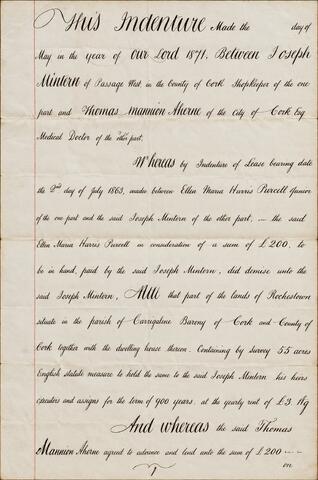 This Indenture Made the day of
May in the year of Our Lord 1871, Between Joseph
Mintern of Passage West, in the County of Cork Shopkeeper of the one
part and Thomas Mannion Aherne of the City of Cork Esq
Medical Doctor of the other part,
Whereas by Indenture of Lease bearing date
the 2nd day of July 1863, made between Ellen Maria Harris Purcell Spinster
of the one part and the said Joseph Mintern of the other part, — the said
Ellen Maria Harris Purcell in consideration of a sum of £200, to
be in hand, paid by the said Joseph Mintern, did demise unto the
said Joseph Mintern, All that part of the lands of Rochestown
situate in the parish of Carrigaline Barony of Cork and County of
Cork together with the dwelling house thereon. Containing by survey 55 acres
English statute measure to hold the same to the said Joseph Mintern his heirs
executors and assigns for the term of 900 years, at the yearly rent of £3.
And whereas the said Thomas
Mannion Aherne agreed to advance and lend unto the sum of £200 —
on